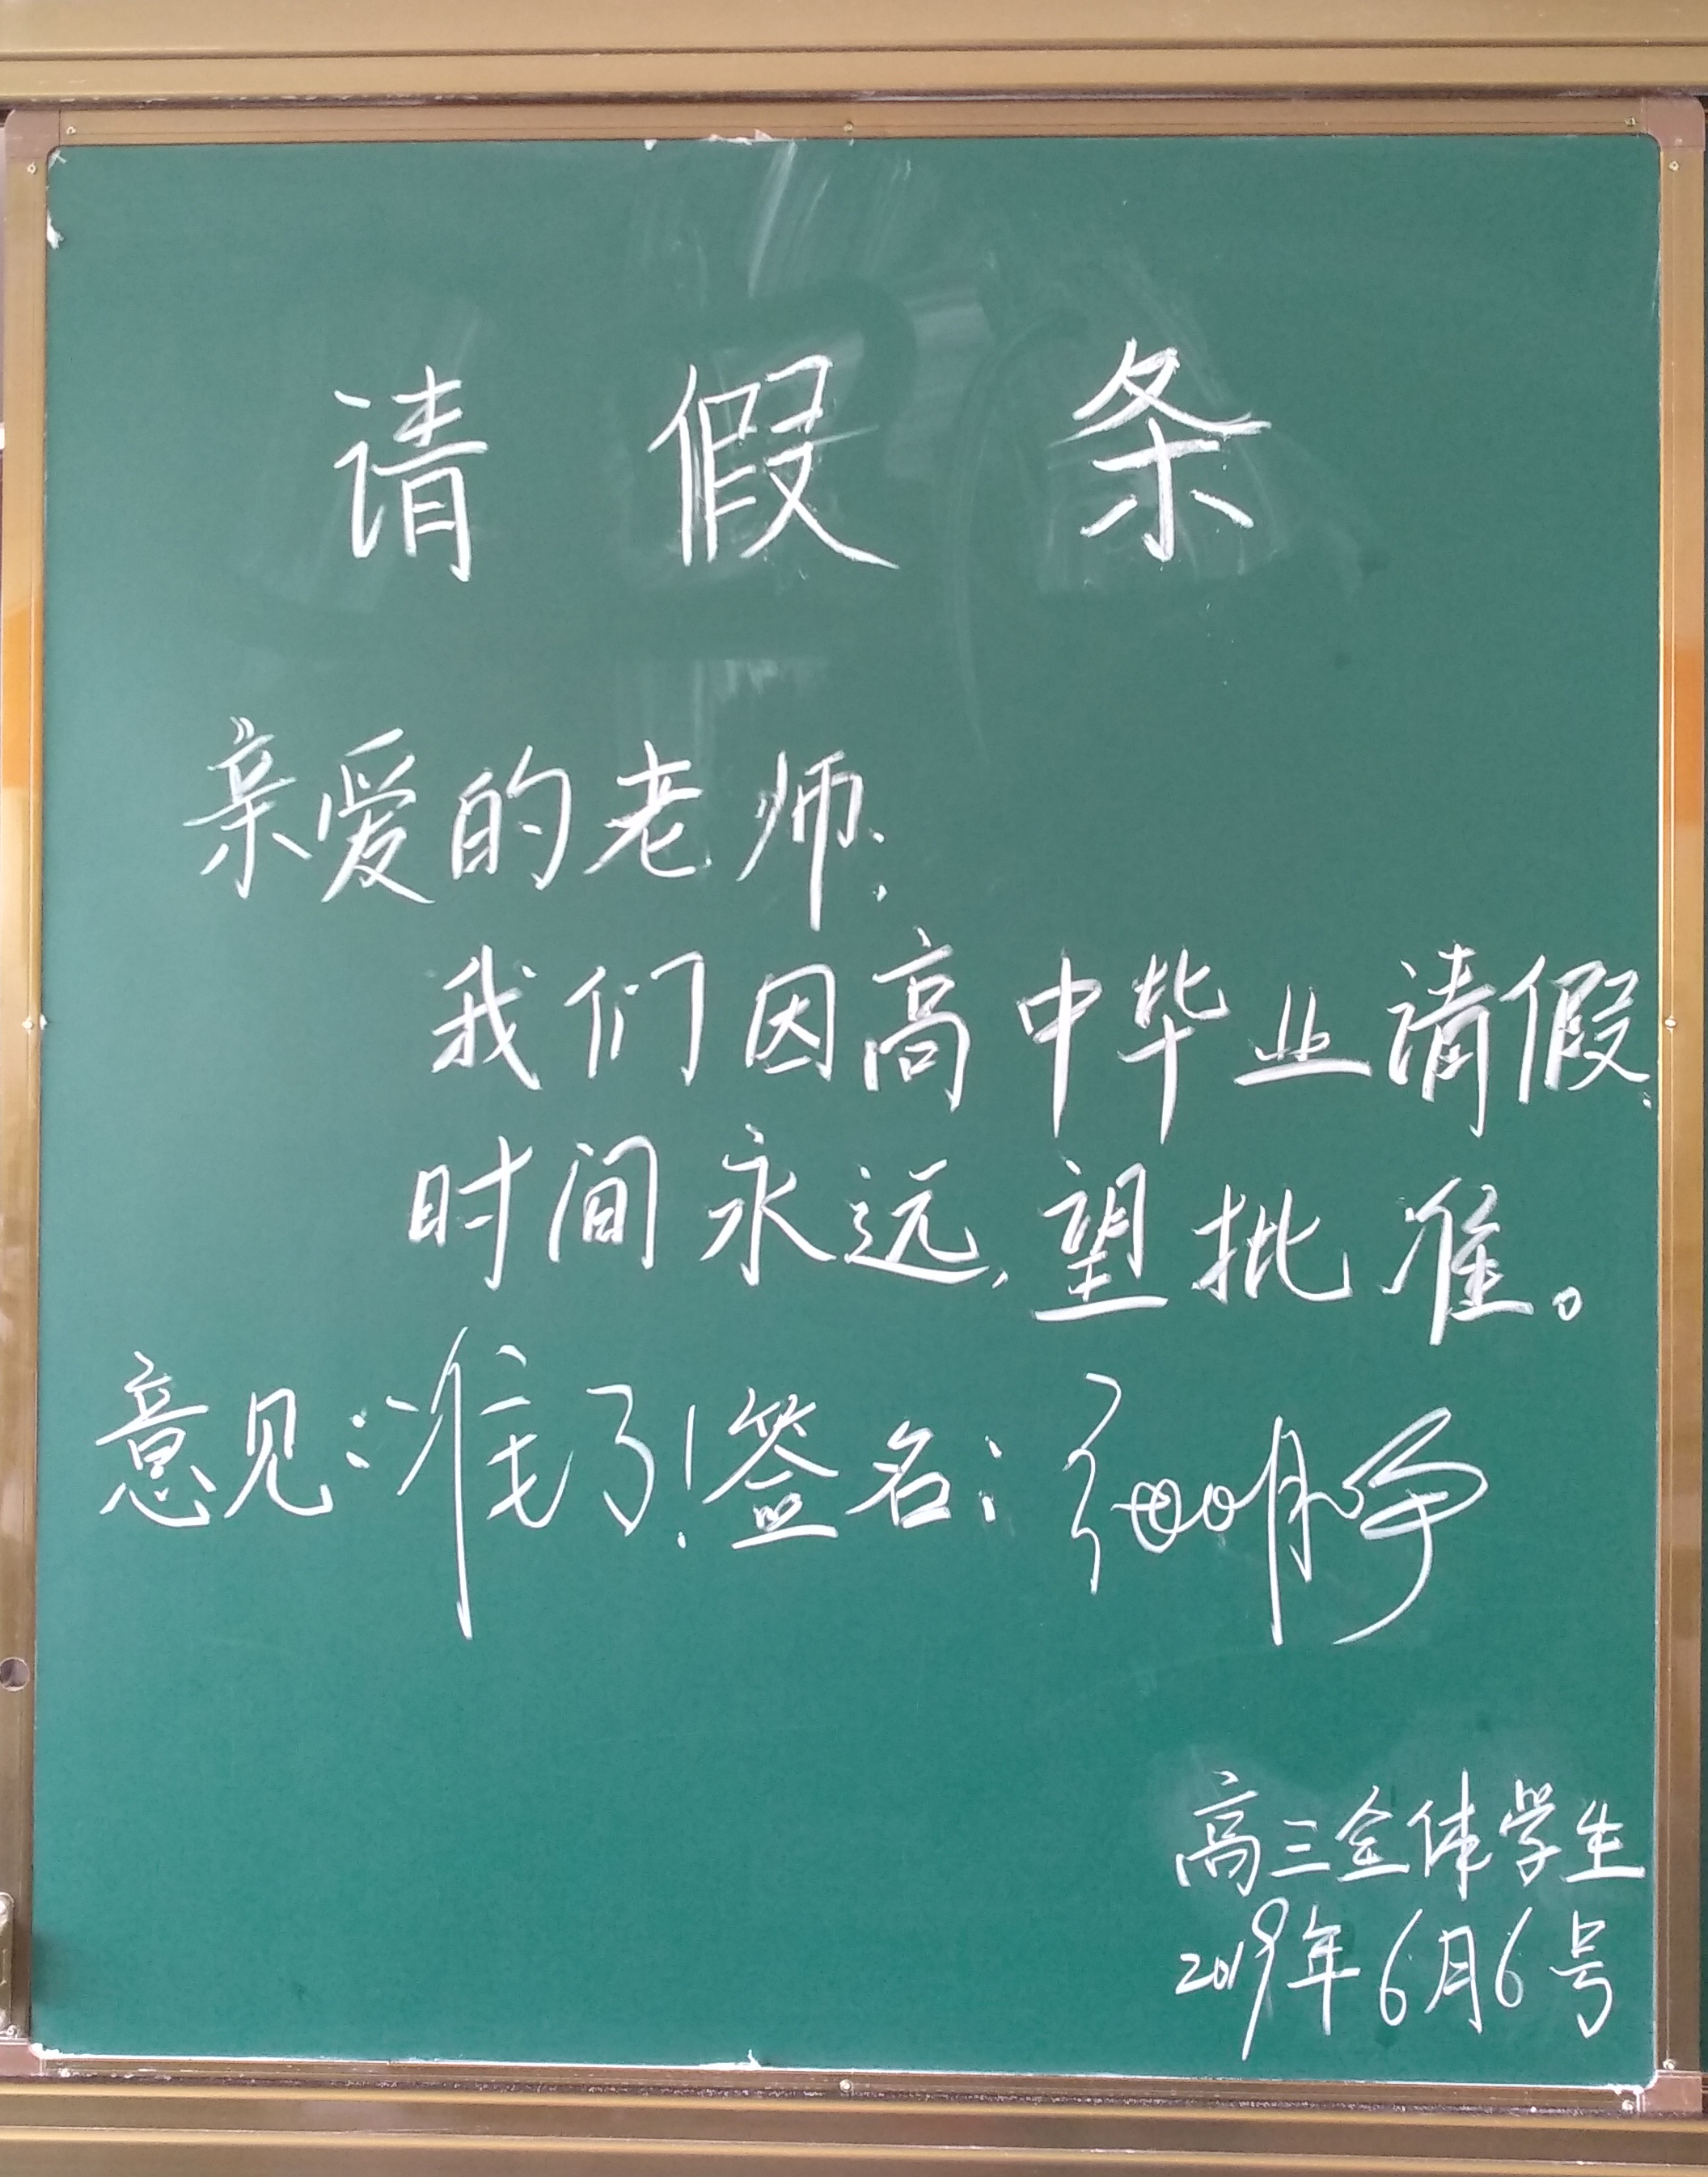 请假条
亲爱的老师:
我们因高中毕业请假,
时间永远,望批准。
意见:准了!签名:
高三全体学生
2019年6月6号